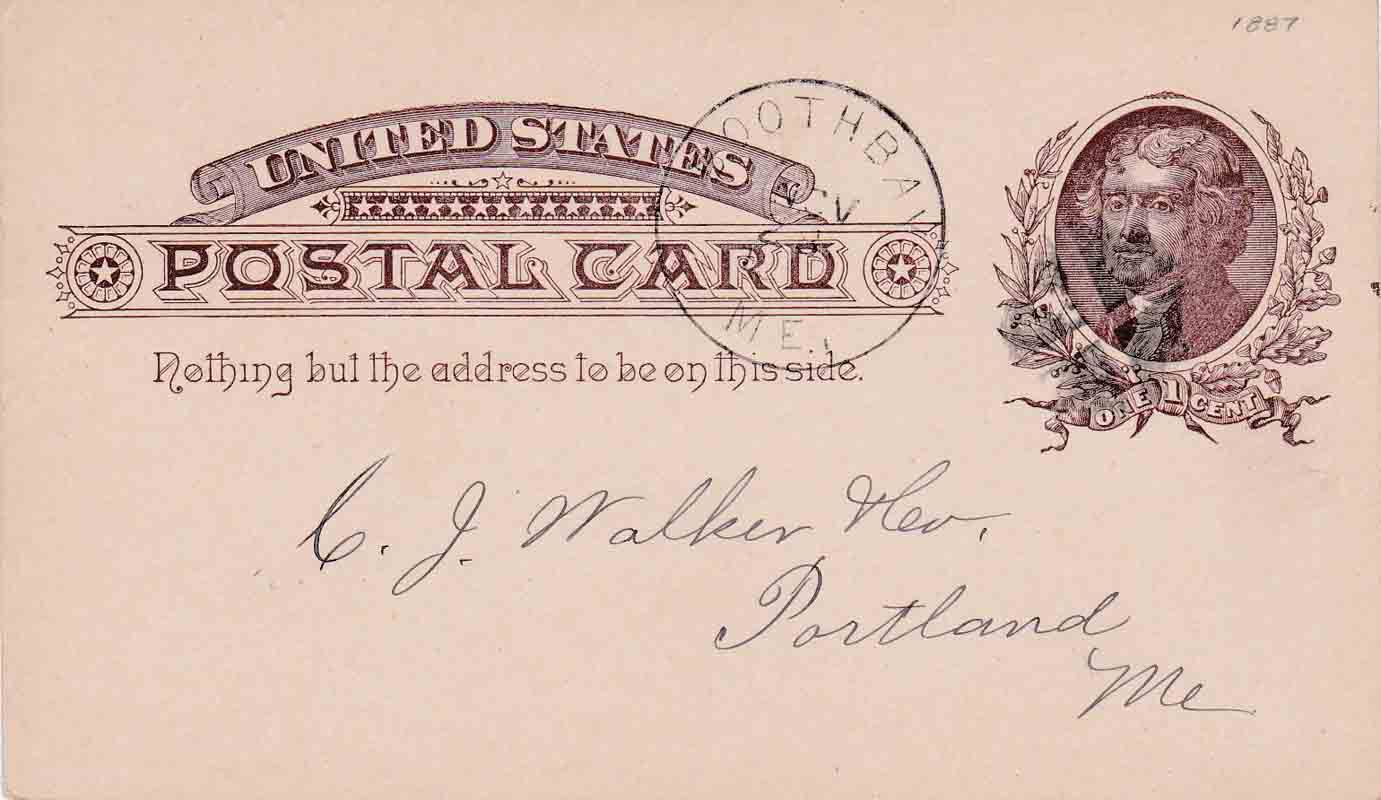 1887
UNITED STATES
POSTAL CARD
OOTHBA
ME.
Nothing but the address to be on this side.
ONE 1 CENT
C. J. Walker
Portland
Me